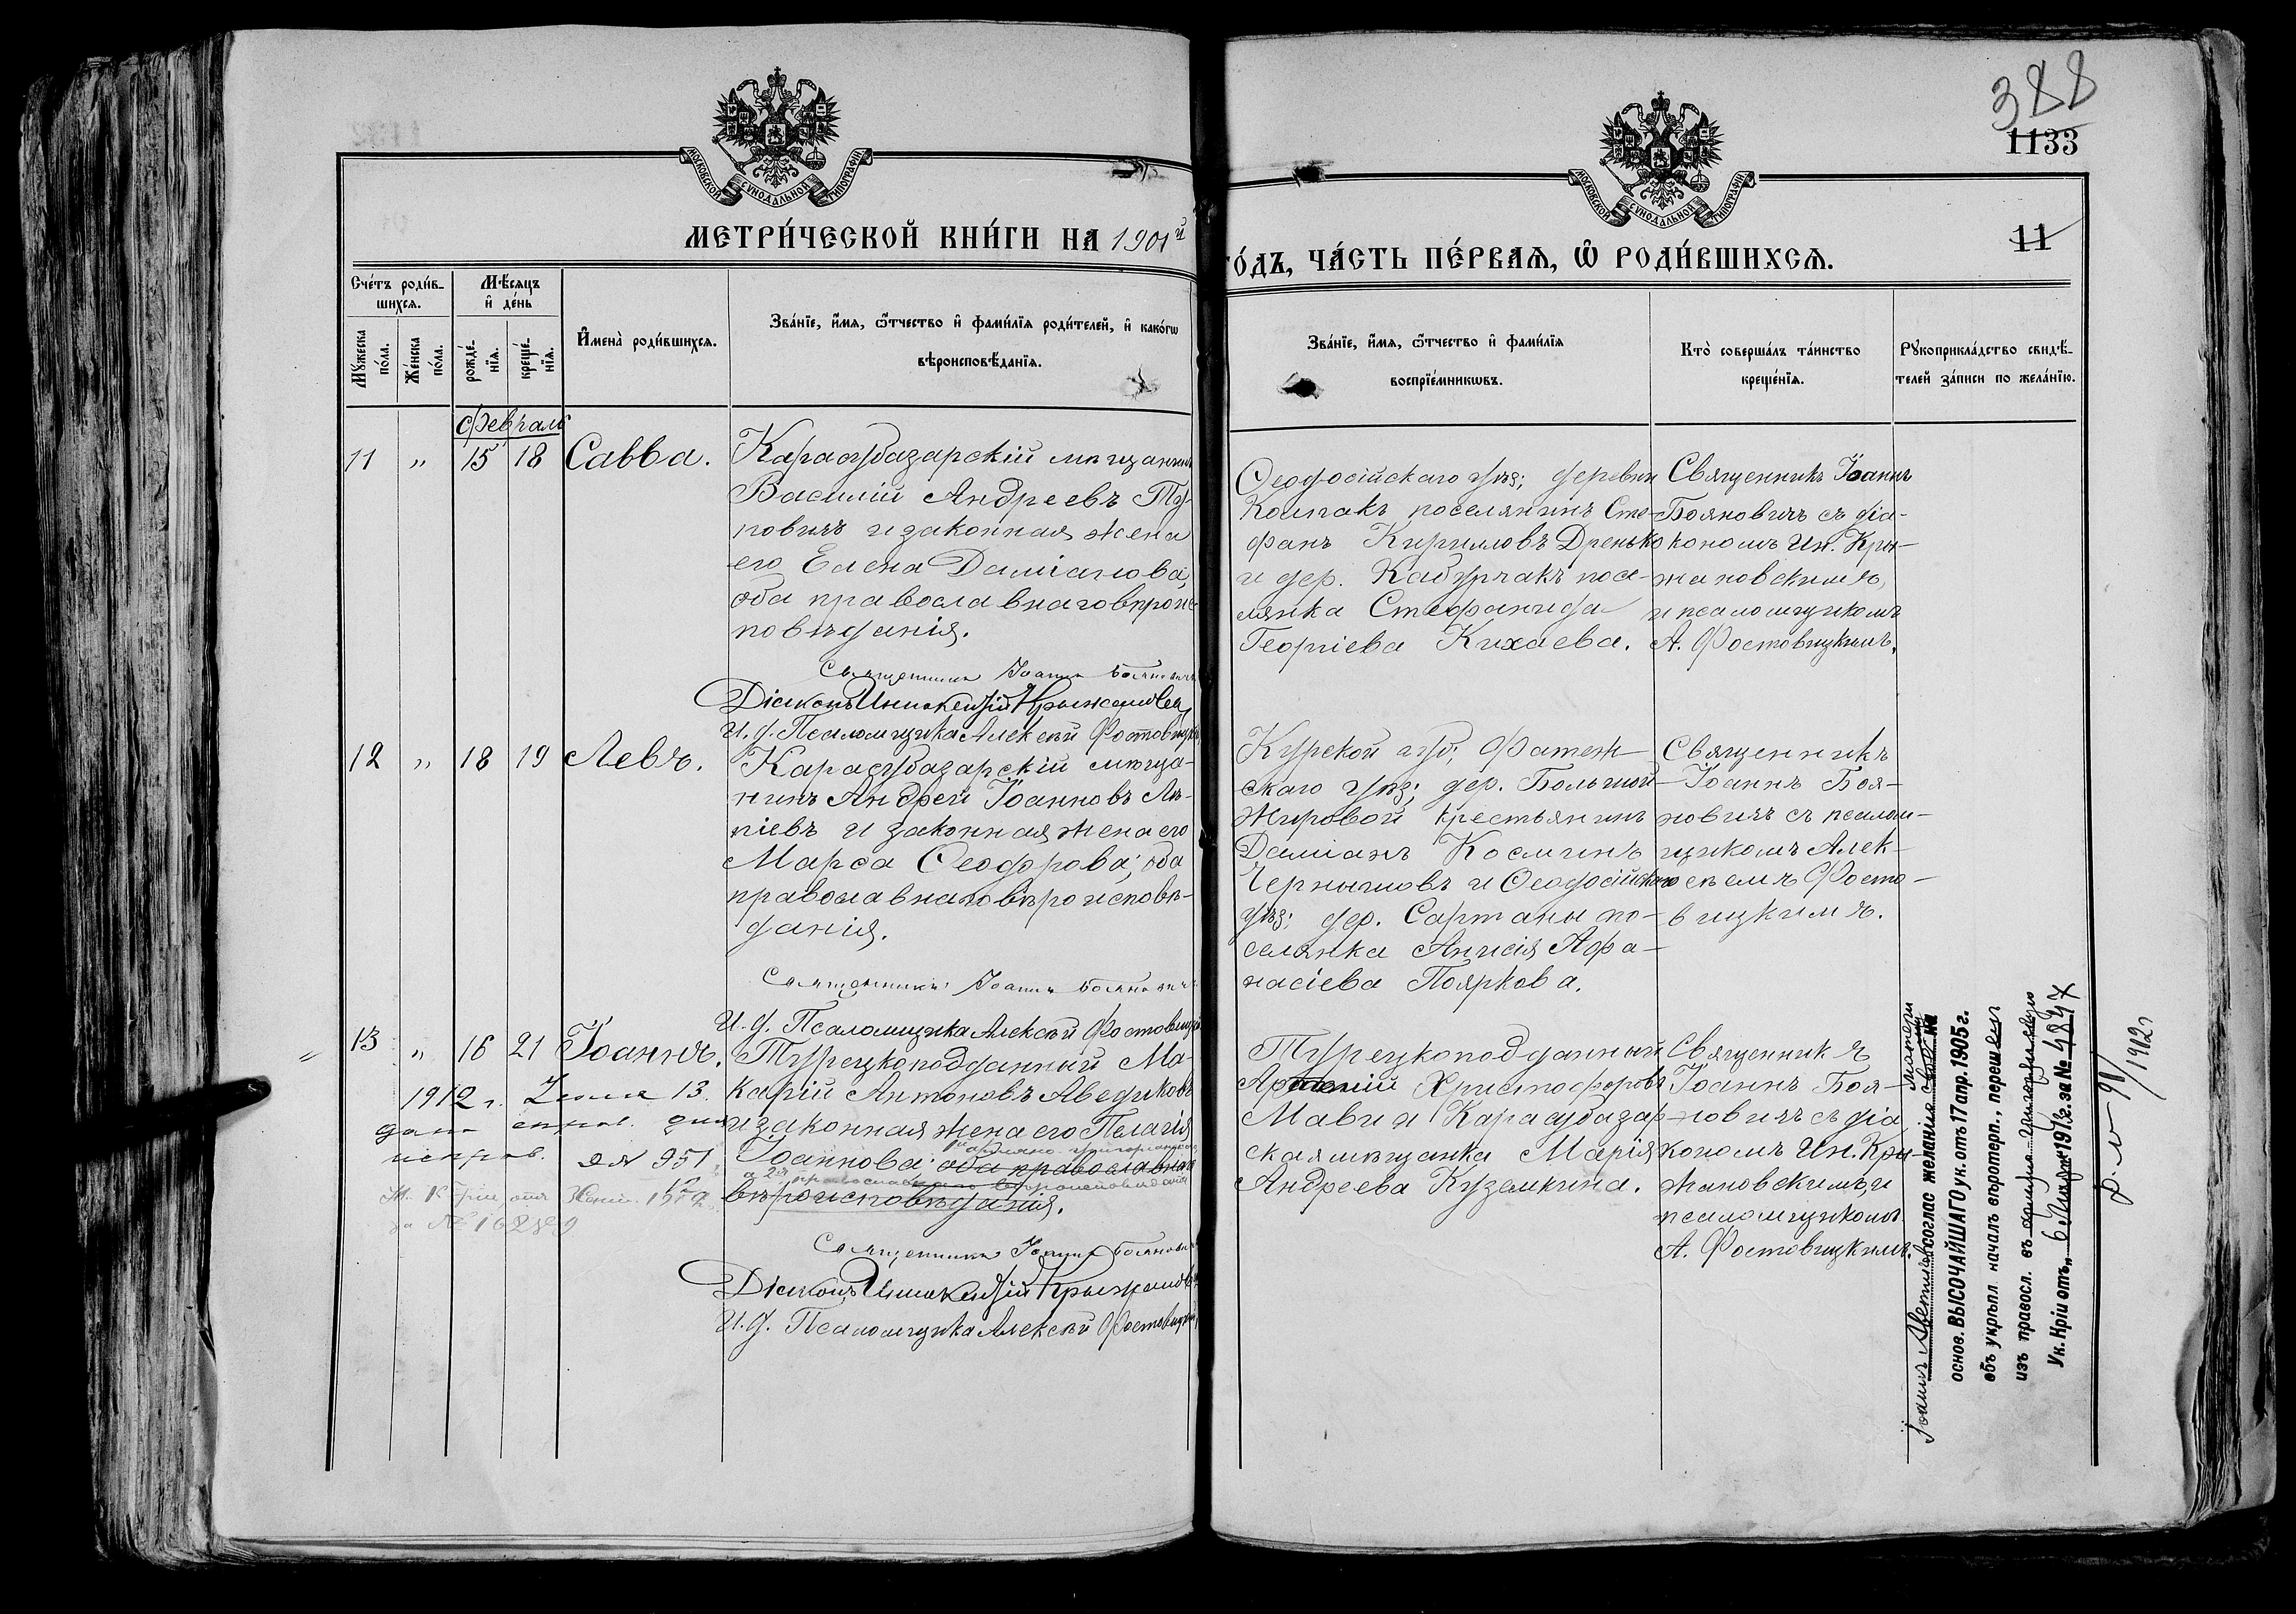 388
1133
11
МОСКОВСКОЙ СУНОДАЛЬНОЙ ТИПОГРАФІИ
МОСКОВСКОЙ СУНОДАЛЬНОЙ ТИПОГРАФІИ
МЕТРИ́ЧЕСКОЙ КНИ́ГИ НА 1901й
ГО́ДЪ, ЧА́СТЬ ПЕ́РВАЯ, Ѡ РОДИ́ВШИХСЯ.
Сче́тъ роди́в-
шихся.
Мужеска
по́ла.
Же́нска
по́ла.
Мѣ́сяцъ
и де́нь
рожде́-
нія.
креще́-
нія.
Имена̀ роди́вшихся.
Зва́ніе, и́мя, ѻ҆́тчество и фами́лія роди́телей, и како́гѡ
вѣроисповѣ́данія.
Зва́ніе, и́мя, ѻ҆́тчество и фами́лія
воспріе́мникѡвъ.
Кто̀ соверша́лъ та́инство
креще́нія.
Рукоприкла́дство свидѣ́-
телей за́писи по жела́нію.
Февраль
11 " 15 18 Савва.
Карасубазарскій мѣщанинъ
Василій Андреевъ Ту-
повичъ и законная жена
его Елена Даміанова,
оба православнаго вѣроис-
повѣданія.
Священникъ Іоаннъ Бояновичъ
Діаконъ Иннокентій Крыжановск
И. д. Псаломщика Алексѣй Фостовицкій
Ѳеодосійскаго уѣз; деревни
Колпакъ поселянинъ Сте-
фанъ Кирилловъ Дренько
и дер. Кабурчакъ посе-
лянка Стефанида
Георгіева Кихаева.
Священникъ Іоаннъ
Бояновичъ съ діа-
кономъ Ин. Кры-
жановскимъ,
и псаломщикомъ
А. Фостовицкимъ.
12 " 18 19 Левъ.
Карасубазарскій мѣща-
нинъ Андрей Іоанновъ Ля-
піевъ и законная жена его
Марѳа Ѳеодорова; оба
православнаго вѣроисповѣ-
данія.
Священникъ Іоаннъ Бояновичъ
И. д. Псаломщика Алексѣй Фостовицкій
Курской губ; Фатеж-
скаго уѣз; дер. Большой
Жировой крестьянинъ
Даміанъ Косминъ
Чернышовъ и Ѳеодосійскаго
уѣз: дер. Сартаны по-
селянка Анисія Афа-
насіева Пояркова.
Священникъ
Іоаннъ Боя-
новичъ съ псалом-
щикомъ Алек-
сѣемъ Фосто-
вицкимъ.
13 " 16 21 Іоаннъ.
Турецкоподданный Ма-
карій Антоновъ Аведиковъ
и законная жена его Пелагія
Іоаннова 1й армяно-григоріанскаго
оба православнаго
а 2я православнаго вѣроисповѣданія
вѣроисповѣданія.
Священникъ Іоаннъ Бояновичъ
Діаконъ Иннокентій Крыжановск
И. д. Псаломщика Алексѣй Фостовицкій
1912 г. Іюня 13.
дана справ. для
исправ. за № 951.
за № 16289
Турецкоподданный
Арсеній Христофоровъ
Мави и Карасубазар-
ская мѣщанка Марія
Андреева Куземкина.
Священникъ
Іоаннъ Боя-
новичъ съ діа
кономъ Ин. Кры-
жановскимъ, и
псаломщикомъ
А. Фостовицкимъ.
матери
соглас желанію
основ. ВЫСОЧАЙШАГО ук. отъ 17 апр. 1905 г.
объ укрѣпл началъ вѣротерп., перешелъ
изъ правосл. въ армяно-григоріанскую
Ук. Кріи отъ „6 1912г. за № 4847
1912г